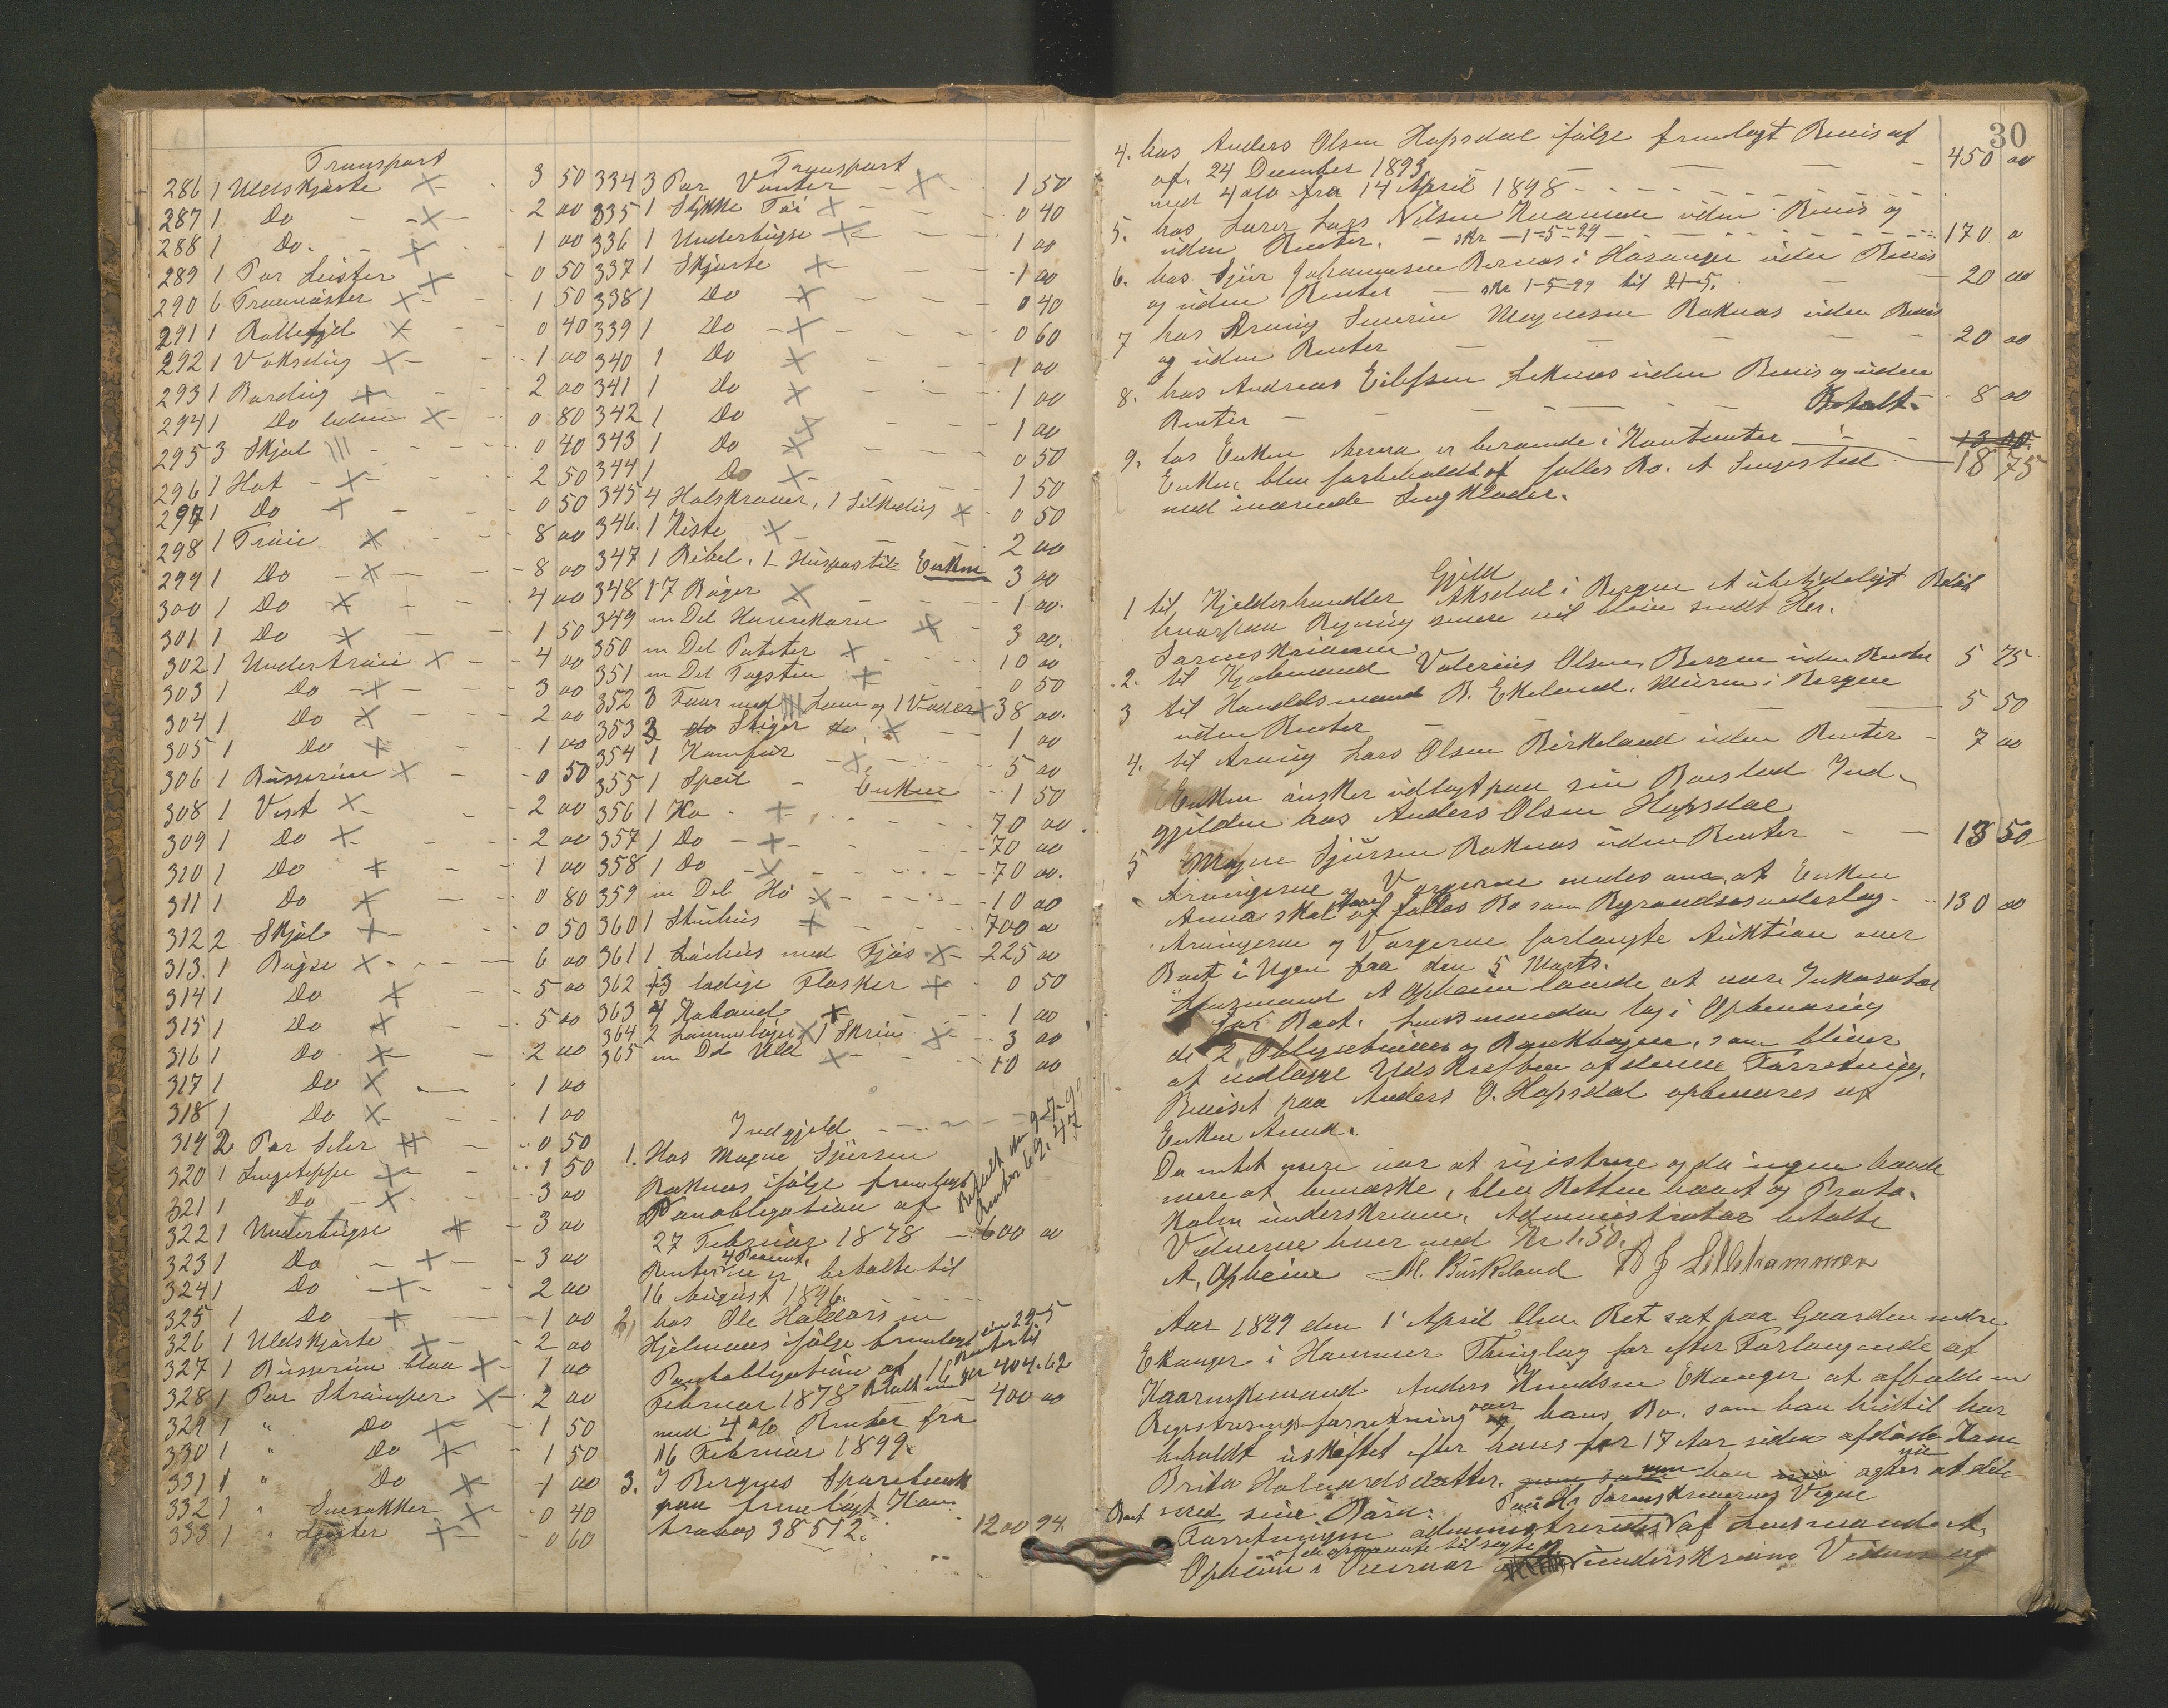 Transport
286 1 Uldskjorte X 3 50
287 1 Do X 2 00
288 1 Do. X 1 00
289 1 Par Leister X 0 50
290 6 X 1 50
291 1 X 0 40
292 1 Voksdug X 1 00
293 1 Bordug X 2 00
294 1 Do liden X 0 80
295 3 Skjal 0 40
296 1 Hat X 2 50
297 1 Do X 0 50
298 1 Trøie X 8 00
299 1 Do X 8 00
300 1 Do X 4 00
301 1 Do X 1 50
302 1 Undertrøie X 4 00
303 1 Do X 3 00
304 1 Do X 2 00
305 1 Do X 1 00
306 1 Busserun X 0 50
308 1 Vest X 2 00
309 1 Do X 2 00
310 1 Do X 1 00
311 1 Do X 0 80
312 2 Skjal X 0 50
313. 1 Bugse X 6 00
314 1 Do X 5 00
315 1 Do X 5 00
316 1 Do X 2 00
317 1 Do X 1 00
318 1 Do X 1 00
319 2 Par Seler X 0 50
320 1 Sengeteppe X 1 50
321 1 Do X 3 00
322 1 Underbugse X 3 00
323 1 Do X 3 00
324 1 Do X 2 00
325 1 Do X 1 00
326 1 Uldskjorte X 2 00
327 1 Busserun blaa X 1 00
328 1 Par Strømper X 2 00
329 1 " Do X 1 50
330 1 " Do X 1 50
331 1 " Do X 1 00
332 1 " Snesokker X 0 40
333 1 " Leister X 0 60
Transport
334 3 Par Vanter X 1 50
335 1 Stykke Tøi X 0 40
336 1 Underbugse X 1 00
337 1 Skjorte X 1 00
338 1 Do X 0 40
339 1 Do X 0 60
340 1 Do X 1 00
341 1 Do X 1 00
342 1 Do X 1 00
343 1 Do X 0 50
344 1 Do X 1 50
345 4 Halskraver, 1 Silkedug X 0 50
346. 1 Kiste X 2 00
347 1 Bibel, 1 Huspostil Enken 3 00
348 17 Bøger X 1 00.
349 en Del Havrekorn X 3 00.
350 en Del Poteter X 10 00
351 en Del Tagsten X 0 50
352 3 Faar med Lam og 1 Væder X 38 00.
353 3 do Stiger do X 1 00
354 1 Komfur X 5 00
355 1 Speil Enken 1 50
356 1 Ko X 70 00.
357 1 Do X 70 00
358 1 Do X 70 00.
359 en Del Hø X 10 00
360 1 Stuehus X 700 00
361 1 Løehus med Fjøs X 225 00
362 13 ledige Flasker X 0 50
363 4 Kobaand X 1 00
364 2 1 Skrin X 3 00
365 en Del Uld X 10 00
Indgjeld
1. Hos Magne Sjursen
Raknes ifølge fremlagt
Panobligation af
27 Februar 1878 600 00
4 Procent.
Renterne er betalte til
16 August 1896.
2, hos Ole Hallvorsen
Hjelmaas ifølge fremlagt
Pantobligation af 16
Februar 1878 400 00
med 4 % Renter fra
16 Februar 1899.
3. I Bergens Sparebank
paa fremlagt Kon-
trabog 38512. 1200 94.
30
4. hos Anders Olsen Hopsdal ifølge fremlagt Bevis af
af. 24 December 1893 450 00
med 4 o/o fra 14 April 1898
5. hos Lærer Lars Nilsen Kvamme uden Bevis og
uden Renter. skr 1-5-99 170 0
6. hos Sjur Johannesen Bernes i Hosanger uden Bevis
og uden Renter skr 1-5-99 til 21-5. 20 00
7 hos Arving Severin Magnesen Raknes uden Bevis
og uden Renter 20 00
8. hos Andreas Eilefsen Leknes uden Bevis og uden
Renter Betalt. 8 00
9. hos Enken Anna er beroende i Kontanter 18 75
Enken blev forbeholdt af fælles Bo. et Sengested
med iværende Sengklæder.
Gjeld
1 til Kjelderhandler Aksdal i Bergen et ubetydeligt Beløb
hvorpaa Regning senere vil blive sendt Hr.
Sorenskriveren.
2. til Kjøbmand Valerius Olsen, Bergen uden Renter 5 75
3 til Handelsmand B. Ekeland, Muren i Bergen
uden Renter 5 50
4. til Arving Lars Olsen Birkeland uden Renter 7 00
Enken ønsker udlagt paa sin Boeslod Ind-
gjælden hos Anders Olsen Hopsdal
5 Magne Sjursen Raknes uden Renter 13 50
Arvingerne og Værgerne enedes om, at Enken
Anna skal have af fælles Bo som Begravelsesvederlag 130 00
Arvingerne og Værgerne forlangte Auktion over
Boet i Ugen fra den 5 Marts.
Lensmand A Opheim lovede at være Inkasator
for Boet. Lensmanden tog i Opbevaring
de 2 Obligationer og Bankbogen, som bliver
at vedlægge Udskriften af denne Forretning.
Beviset paa Anders O. Hopsdal opbevares af
Enken Anna.
Da intet mere var at registrere og da ingen havde
mere at bemærke, blev Retten hævet og Proto-
kolen underskreven. Administrator betalte
Vidnerne hver med Kr 1.50.
A, Opheim M. Birkeland B J Lillehammer
Aar 1899 den 1 April blev Ret sat paa Gaarden nedre
Ekanger i Hammer Thinglag for efter Forlangende af
Kaarmand Anders Knudsen Ekanger at afholde en
Registreringsforretning over hans Bo, som han hidtil har
beholdt uskiftet efter hans for 17 Aar siden afdøde Kone
Brita Halvardsdatter. men han nu agter at dele
Boet med sine Børn. Paa Hr Sorenskriverens Vegne
Forretningen administreredes af Lensmand A.
Opheim i Overvær af underskrevne Vidner og